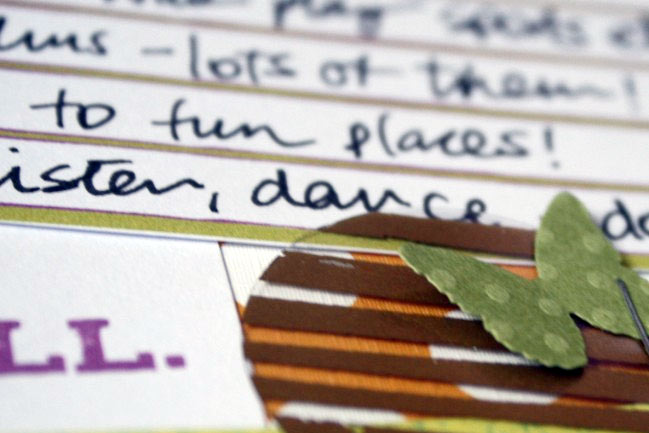 play
- lots of them!
to fun places!
isten, dance, do
LL.